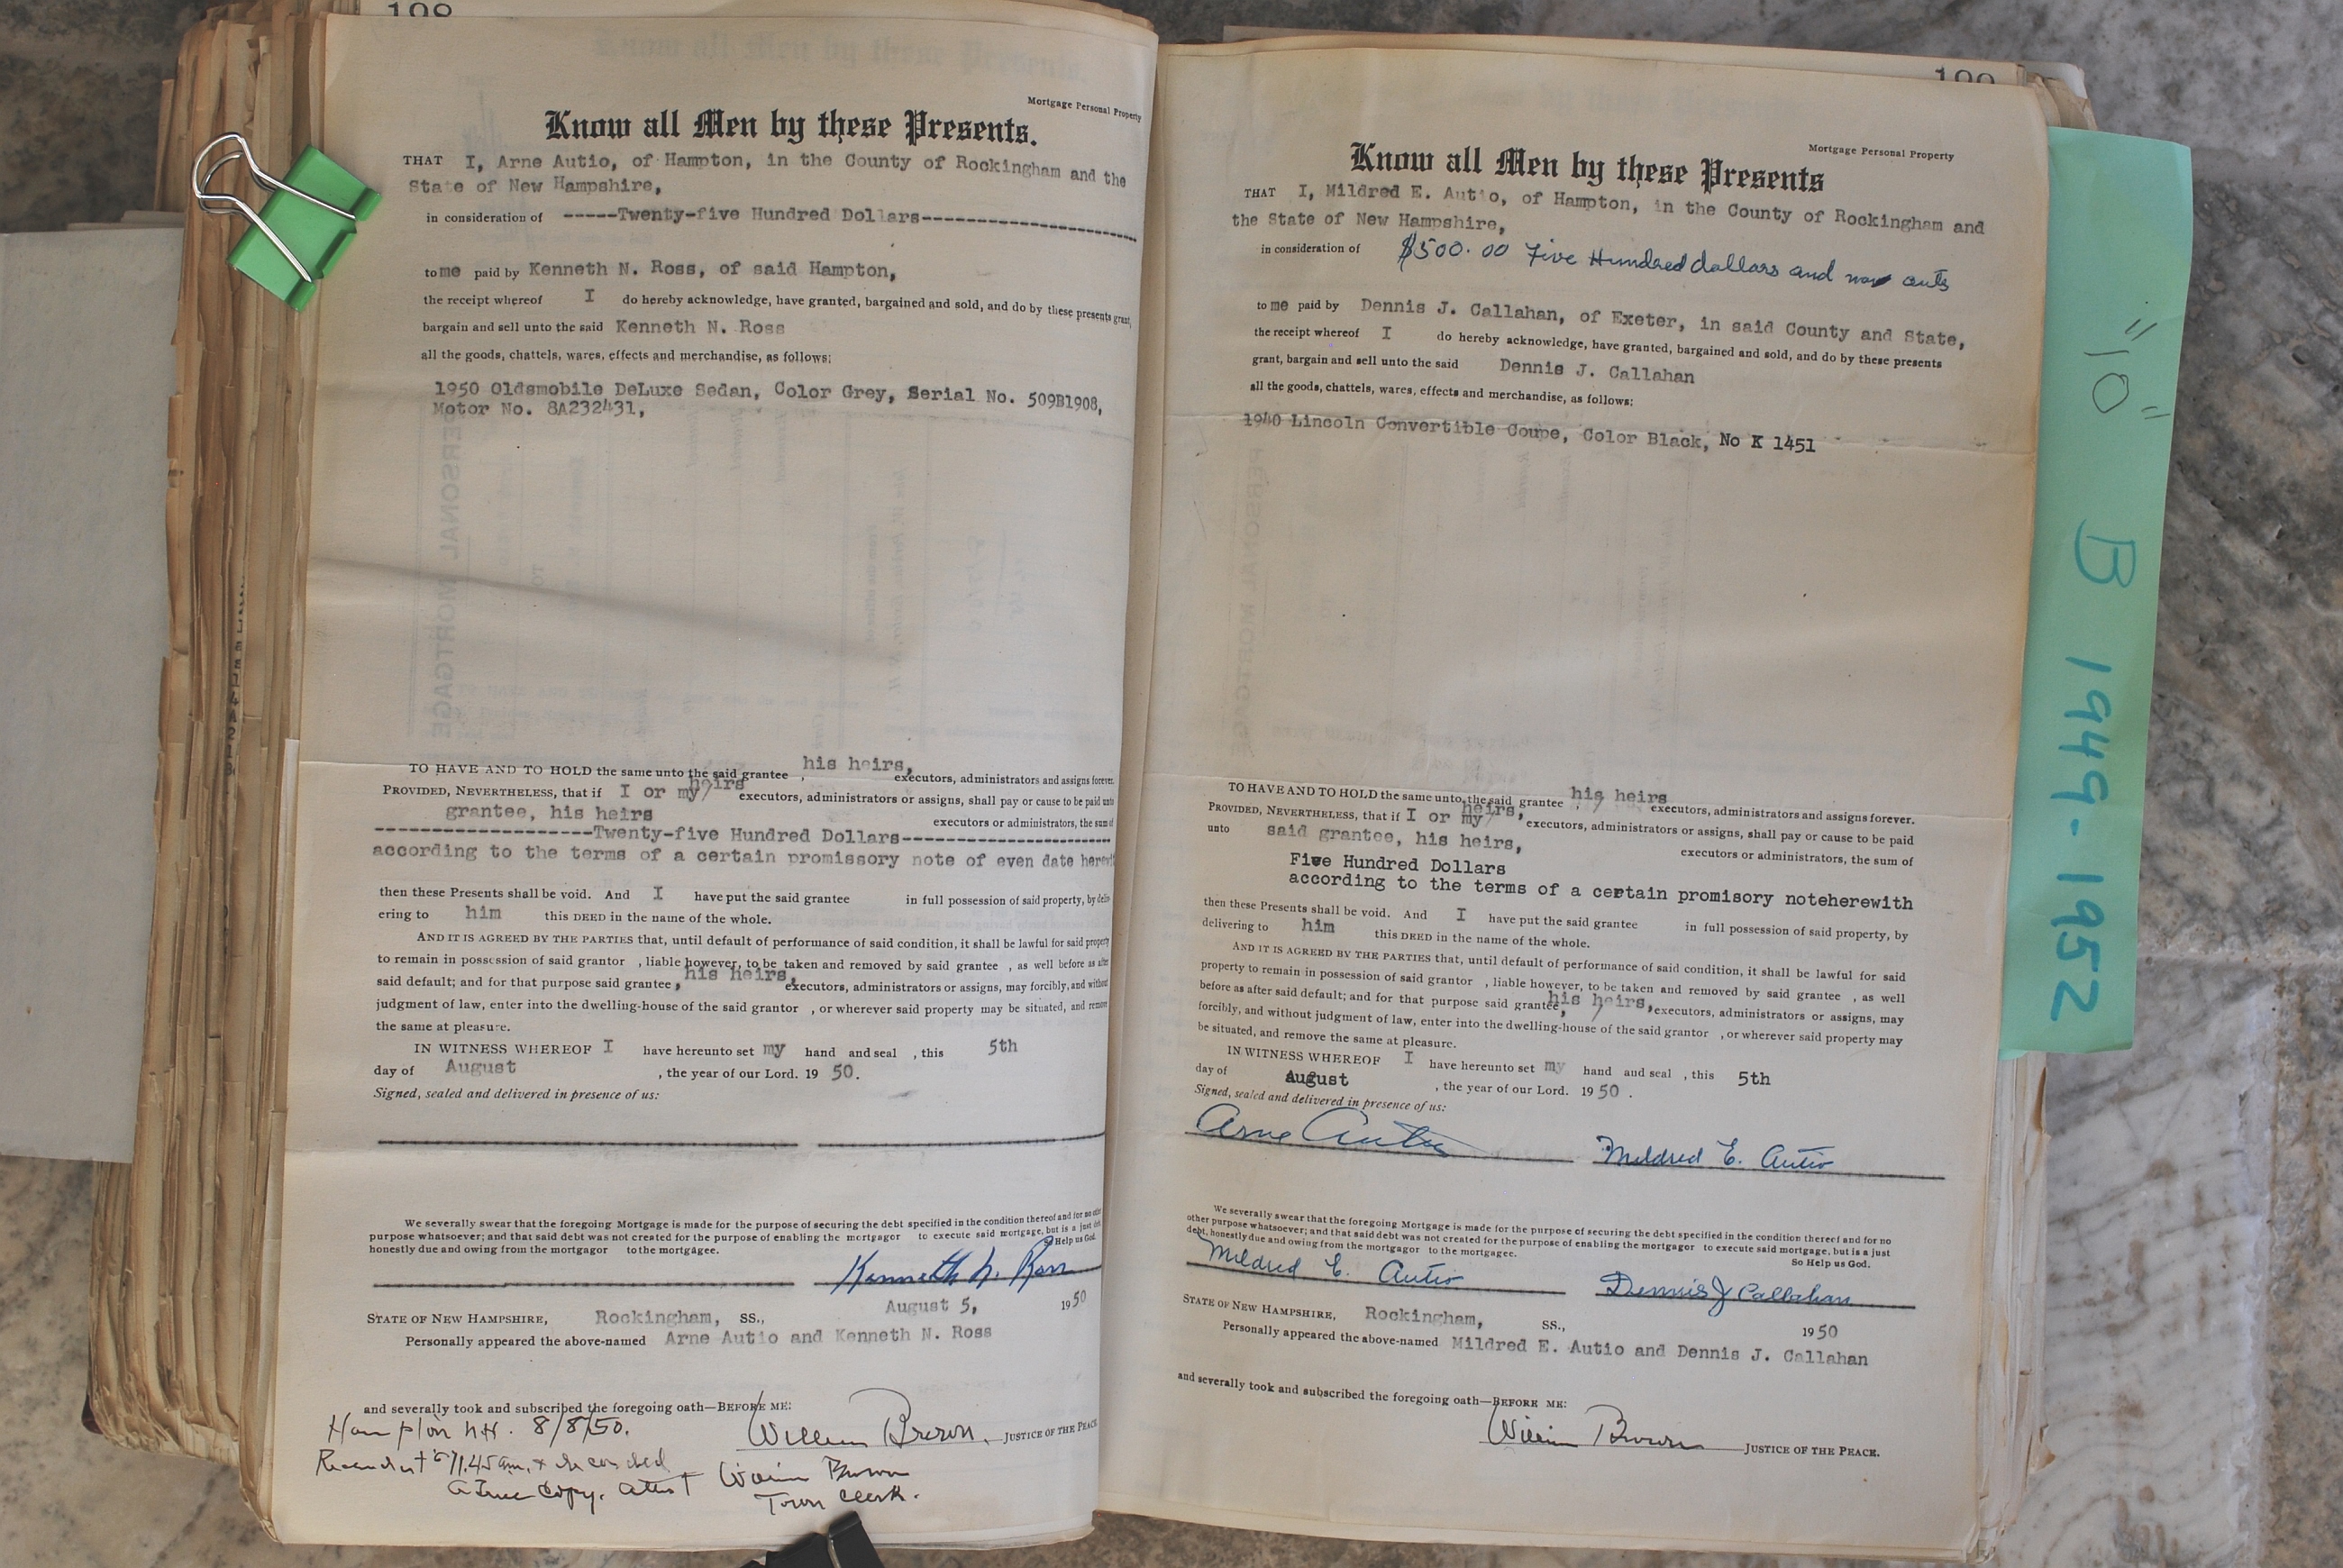 198
Mortgage Personal Property
Know all Men by these Presents.
THAT I, Arne Autio, of Hampton, in the County of Rockingham and the
State of New Hampshire,
in consideration of -----Twenty-five Hundred Dollars-----
to me paid by Kenneth N. Ross, of said Hampton,
the receipt whereof I do hereby acknowledge, have granted, bargained and sold, and do by these presents grant,
bargain and sell unto the said Kenneth N. Ross
all the goods, chattels, wares, effects and merchandise, as follows:
1950 Oldsmobile DeLuxe Sedan, Color Grey, Serial No. 509B1908,
Motor No. 8A232431,
TO HAVE AND TO HOLD the same unto the said grantee , his heirs, executors, administrators and assigns forever.
PROVIDED, NEVERTHELESS, that if I or my heirs executors, administrators or assigns, shall pay or cause to be paid unto
grantee, his heirs executors or administrators, the sum of
-----Twenty-five Hundred Dollars-----
according to the terms of a certain promissory note of even date
then these Presents shall be void. And I have put the said grantee in full possession of said property, by
ering to him this DEED in the name of the whole.
AND IT IS AGREED BY THE PARTIES that, until default of performance of said condition, it shall be lawful for said property
to remain in possession of said grantor , liable however, to be taken and removed by said grantee , as well before as after
said default; and for that purpose said grantee, his heirs, executors, administrators or assigns, may forcibly, and without
judgment of law, enter into the dwelling-house of the said grantor , or wherever said property may be situated, and remove
the same at pleasure.
IN WITNESS WHEREOF I have hereunto set my hand and seal , this 5th
day of August , the year of our Lord. 19 50.
Signed, sealed and delivered in presence of us:
We severally swear that the foregoing Mortgage is made for the purpose of securing the debt specified in the condition thereof and for no other
purpose whatsoever; and that said debt was not created for the purpose of enabling the mortgagor to execute said mortgage, but is a just
honestly due and owing from the mortgagor to the mortgagee. So Help us God.
Kenneth N. Ross
August 5, 1950
STATE OF NEW HAMPSHIRE, Rockingham, SS.,
Personally appeared the above-named Arne Autio and Kenneth N. Ross
and severally took and subscribed the foregoing oath—BEFORE ME:
William Brown, JUSTICE OF THE PEACE.
Hampton N.H. 8/8/50.
11.45 am. & recorded
A True Copy. Attest William Brown
Town Clerk.
199
Mortgage Personal Property
Know all Men by these Presents
THAT I, Mildred E. Autio, of Hampton, in the County of Rockingham and
the State of New Hampshire,
in consideration of $500.00 Five Hundred dollars and
to me paid by Dennis J. Callahan, of Exeter, in said County and State,
the receipt whereof I do hereby acknowledge, have granted, bargained and sold, and do by these presents
grant, bargain and sell unto the said Dennis J. Callahan
all the goods, chattels, wares, effects and merchandise, as follows:
1940 Lincoln Convertible Coupe, Color Black, No K 1451
TO HAVE AND TO HOLD the same unto the said grantee , his heirs executors, administrators and assigns forever.
PROVIDED, NEVERTHELESS, that if I or my heirs, executors, administrators or assigns, shall pay or cause to be paid
unto said grantee, his heirs, executors or administrators, the sum of
Five Hundred Dollars
according to the terms of a certain promisory noteherewith
then these Presents shall be void. And I have put the said grantee in full possession of said property, by
delivering to him this DEED in the name of the whole.
AND IT IS AGREED BY THE PARTIES that, until default of performance of said condition, it shall be lawful for said
property to remain in possession of said grantor , liable however, to be taken and removed by said grantee , as well
before as after said default; and for that purpose said grantee, his heirs, executors, administrators or assigns, may
forcibly, and without judgment of law, enter into the dwelling-house of the said grantor , or wherever said property may
be situated, and remove the same at pleasure.
IN WITNESS WHEREOF I have hereunto set my hand and seal , this 5th
day of August , the year of our Lord. 19 50 .
Signed, sealed and delivered in presence of us:
Arne Autio Mildred E. Autio
We severally swear that the foregoing Mortgage is made for the purpose of securing the debt specified in the condition thereof and for no
other purpose whatsoever; and that said debt was not created for the purpose of enabling the mortgagor to execute said mortgage, but is a just
debt, honestly due and owing from the mortgagor to the mortgagee.
So Help us God.
Mildred E. Autio Dennis J Callahan
STATE OF NEW HAMPSHIRE, Rockingham, SS., 1950
Personally appeared the above-named Mildred E. Autio and Dennis J. Callahan
and severally took and subscribed the foregoing oath—BEFORE ME:
William Brown JUSTICE OF THE PEACE.
"10" B 1949-1952